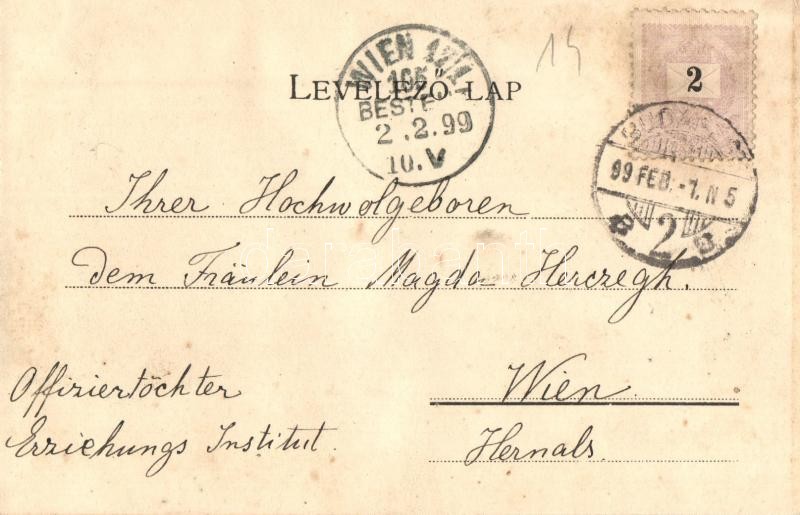 14
2
LEVELEZŐ LAP
WIEN
BESTE
2.2.99
10.V
BUDAPEST
99 FEB.-1. N 5
2
Ihrer Hochwolgeboren
dem Fräulein Magda Herczegh.
Offizierstöchter
Erziehungs Institut.
Wien
Hernals.